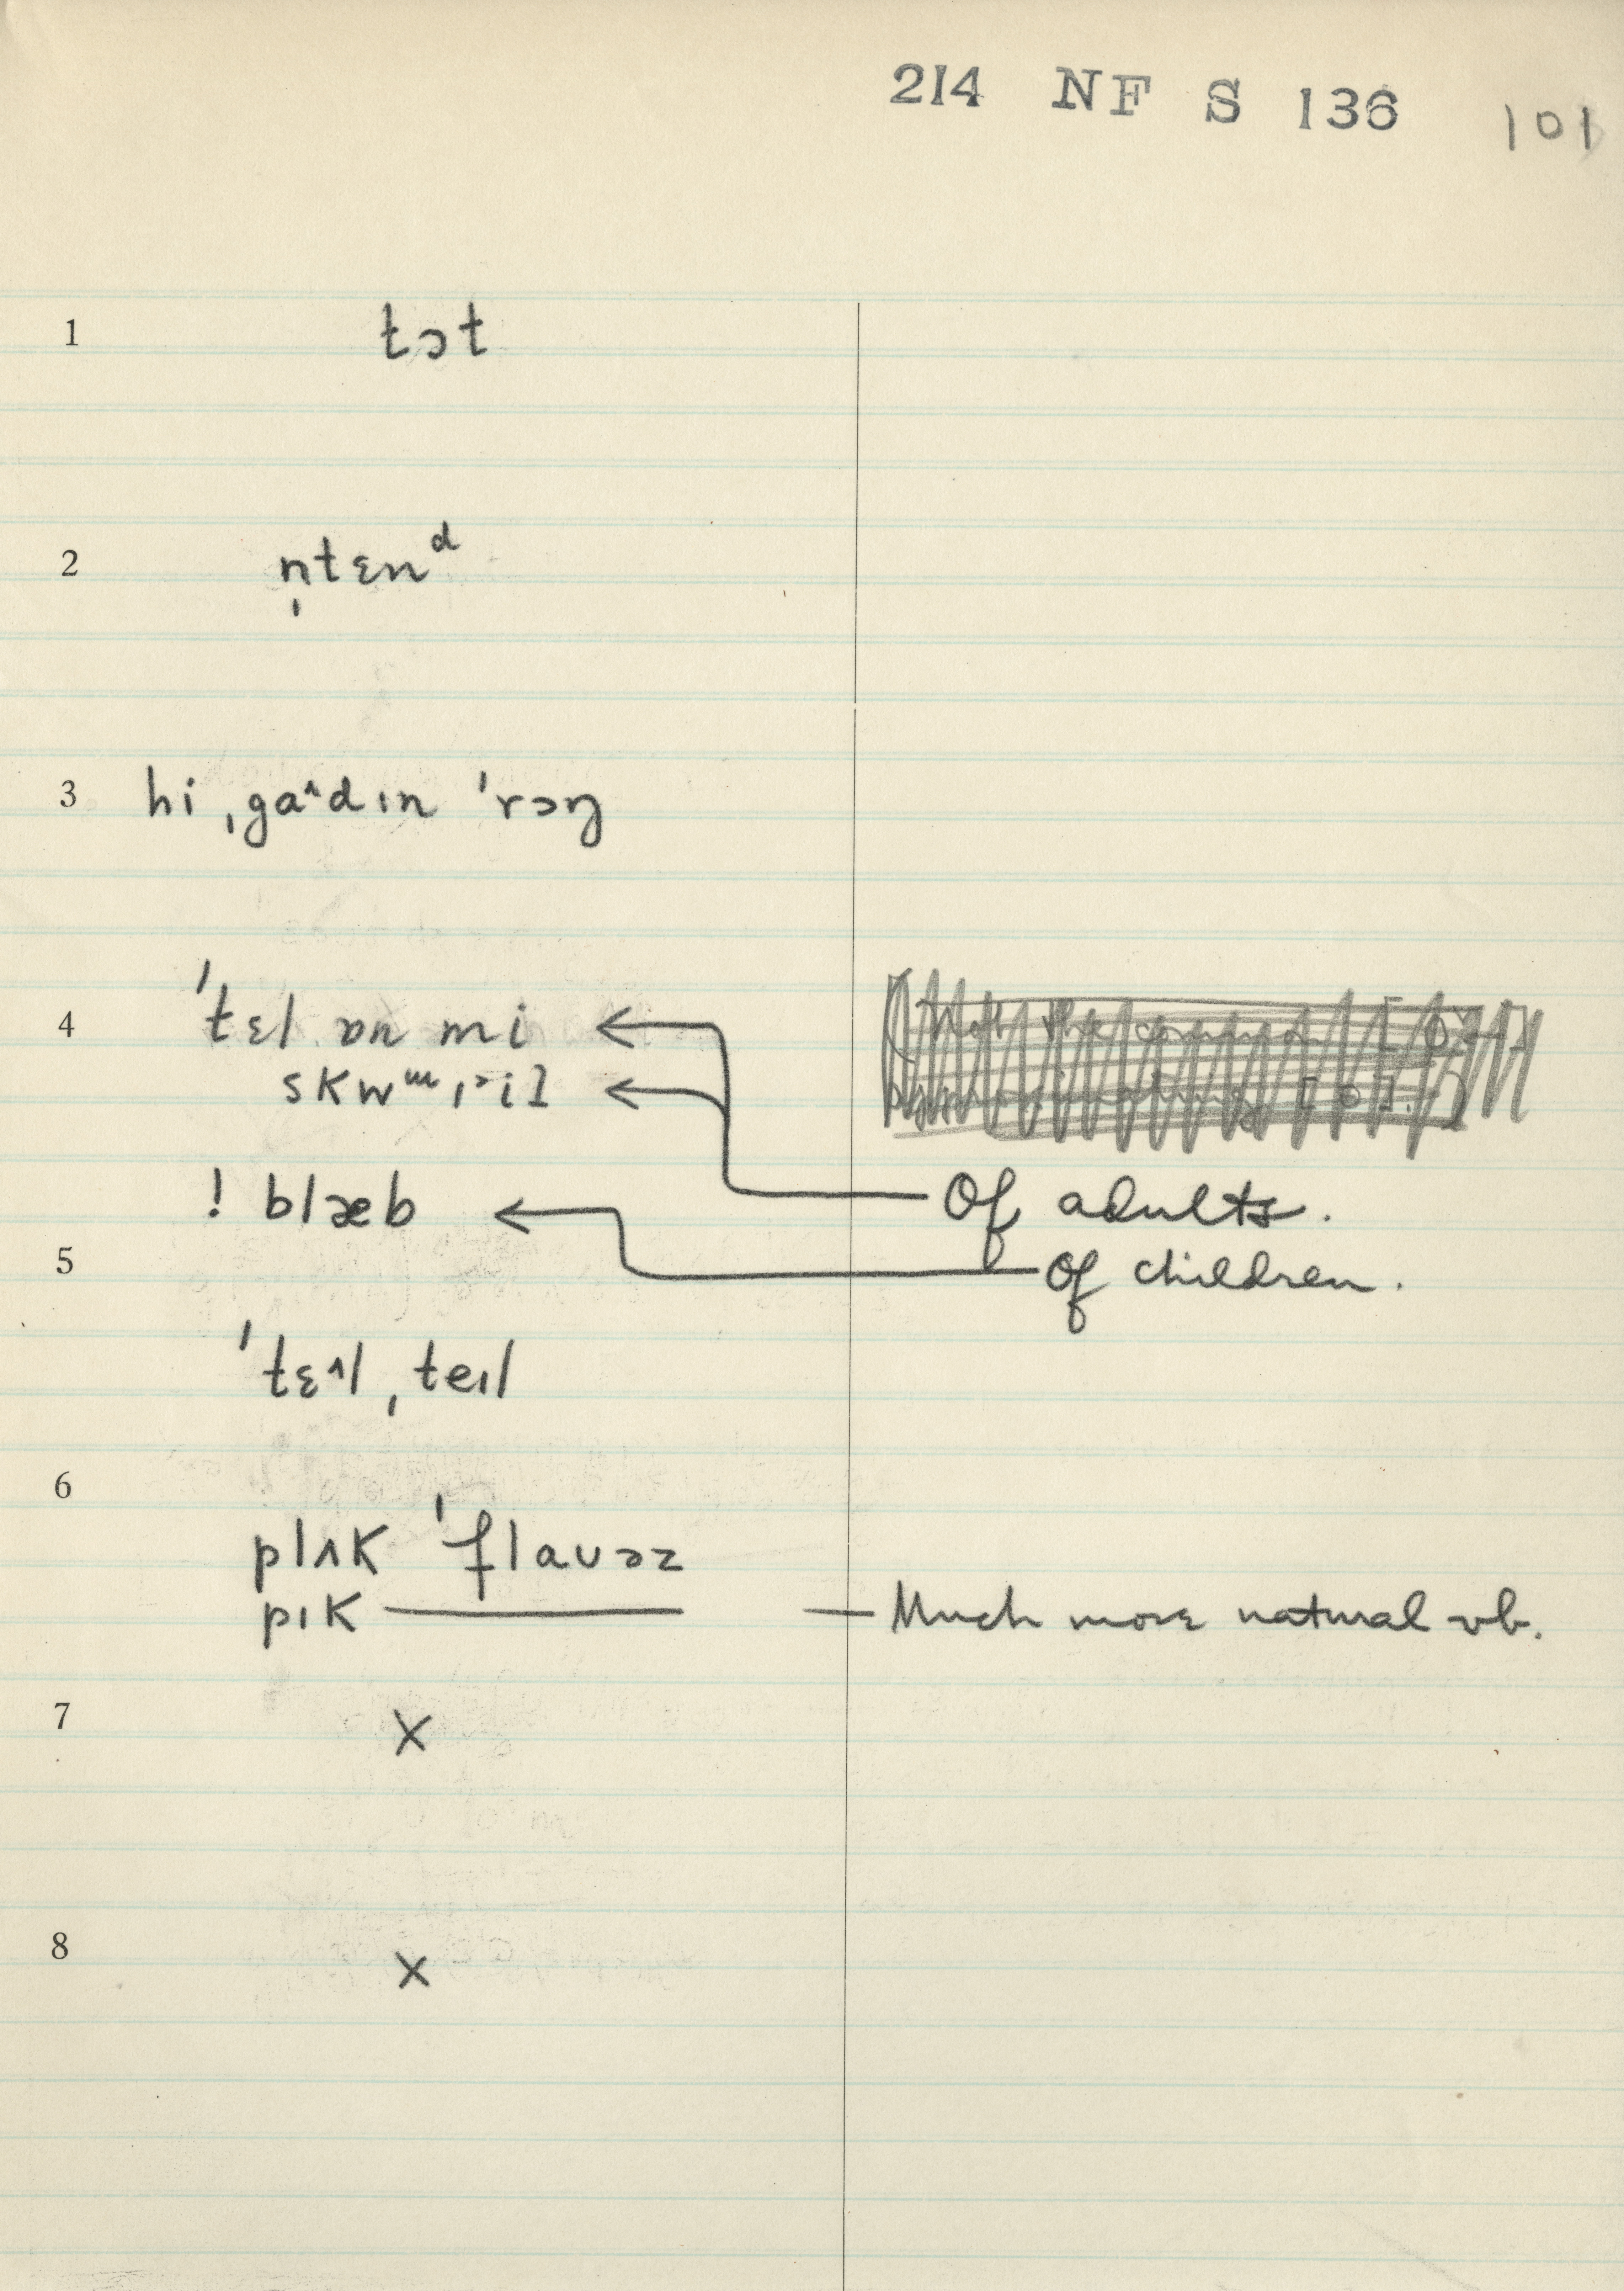 214 NF S 136 101
1 tɔt
2 n̩tɛnᵈ
3 hi ˌgaᶺdɪn ˈrɔŋ
4 ˈtɛl ɒn mi
Of adults.
! blæb
5 Of children.
ˈtɛᶺl ˌteɪl
6
plʌk ˈflaʊəz
pɪk —— — Much more natural vb.
7 x
8 x